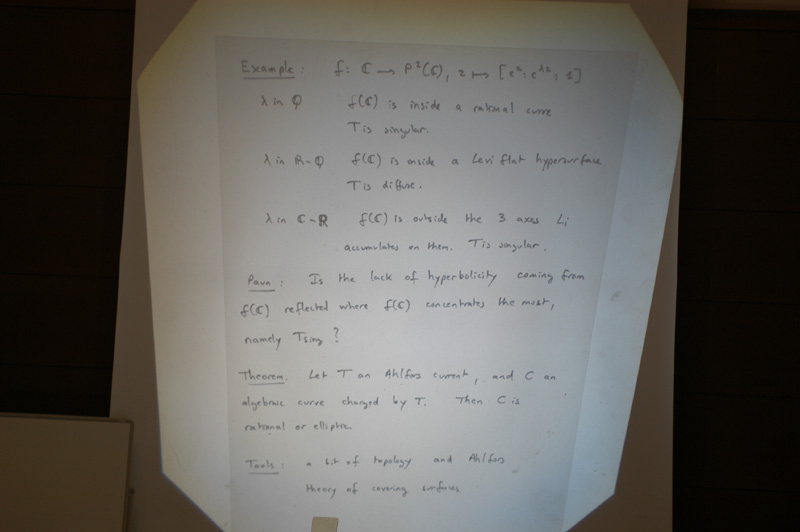 Example : f : ℂ → P²(ℂ), z ↦ [e^z : e^λz : 1]
λ in ℚ f(ℂ) is inside a rational curve
T is singular.
λ in ℝ-ℚ f(ℂ) is inside a Levi flat hypersurface
T is diffuse.
λ in ℂ-ℝ f(ℂ) is outside the 3 axes Li
accumulates on them. T is singular.
Paun : Is the lack of hyperbolicity coming from
f(ℂ) reflected where f(ℂ) concentrates the most,
namely Tsing ?
Theorem. Let T an Ahlfors current, and C an
algebraic curve charged by T. Then C is
rational or elliptic.
Tools : a bit of topology and Ahlfors
theory of covering surfaces